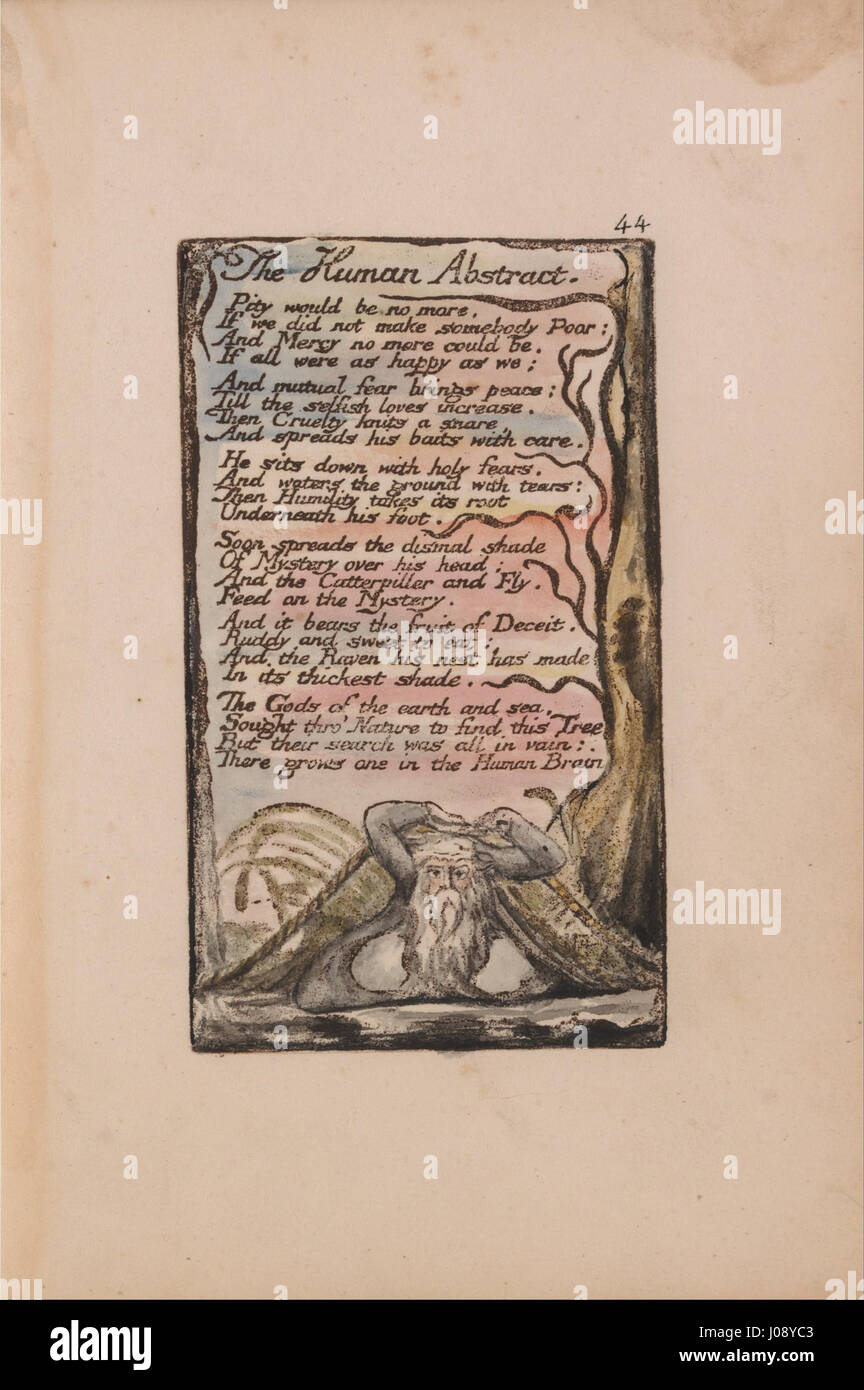 44
The Human Abstract.
Pity would be no more,
If we did not make somebody Poor:
And Mercy no more could be.
If all were as happy as we;
And mutual fear brings peace;
Till the selfish loves increase.
Then Cruelty knits a snare,
And spreads his baits with care.
He sits down with holy fears.
And waters the ground with tears:
Then Humility takes its root
Underneath his foot.
Soon spreads the dismal shade
Of Mystery over his head;
And the Catterpiller and Fly.
Feed on the Mystery.
And it bears the fruit of Deceit.
Ruddy and sweet to eat;
And the Raven his nest has made
In its thickest shade.
The Gods of the earth and sea,
Sought thro' Nature to find this Tree
But their search was all in vain:
There grows one in the Human Brain
a
a
alamy
a alamy stock photo
alamy
Image ID: J08YC3
www.alamy.com